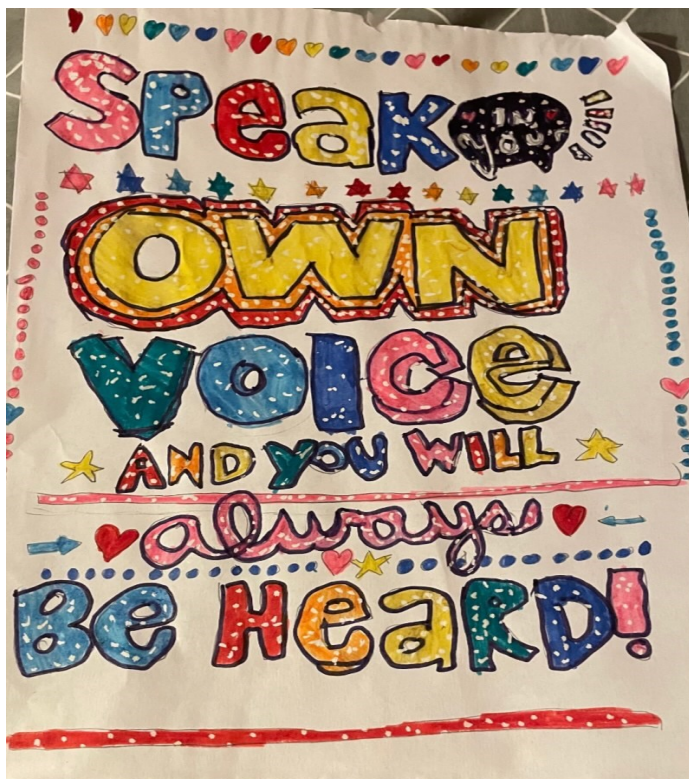 Speak IN your
OWN
VOICE
AND YOU WILL
always
Be HeaRD!